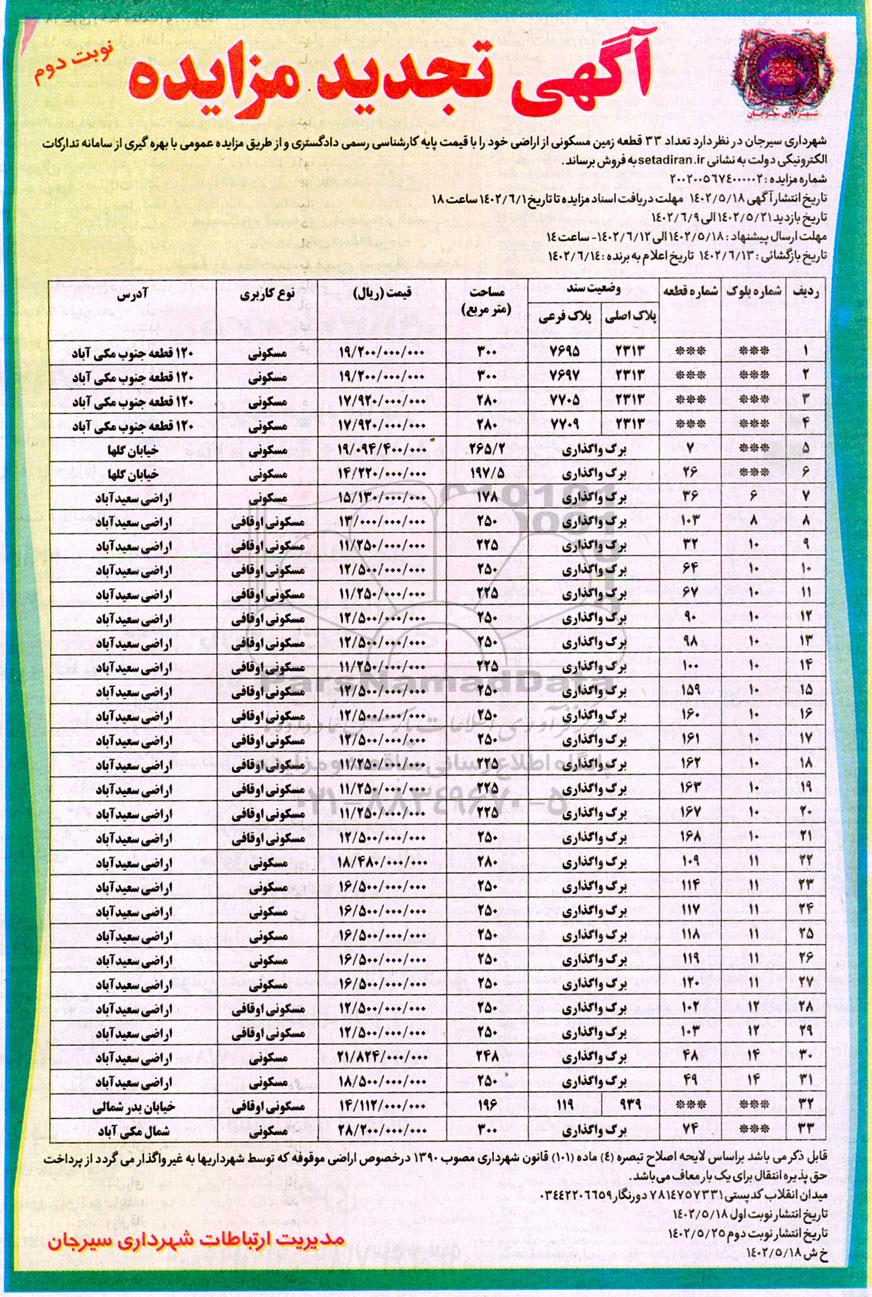 آگهی تجدید مزایده
نوبت دوم
شهرداری سیرجان
شهرداری سیرجان در نظر دارد تعداد ۳۳ قطعه زمین مسکونی از اراضی خود را با قیمت پایه کارشناسی رسمی دادگستری و از طریق مزایده عمومی با بهره گیری از سامانه تدارکات
الکترونیکی دولت به نشانی setadiran.ir به فروش برساند.
شماره مزایده : ۲۰۰۲۰۰۵۶۷۴۰۰۰۰۰۲
تاریخ انتشار آگهی ۱۴۰۲/۵/۱۸ مهلت دریافت اسناد مزایده تا تاریخ ۱۴۰۲/۶/۱ ساعت ۱۸
تاریخ بازدید ۱۴۰۲/۵/۲۱ الی ۱۴۰۲/۶/۹
مهلت ارسال پیشنهاد : ۱۴۰۲/۵/۱۸ الی ۱۴۰۲/۶/۱۲- ساعت ۱۴
تاریخ بازگشائی : ۱۴۰۲/۶/۱۳ تاریخ اعلام به برنده : ۱۴۰۲/۶/۱۴
ردیف شماره بلوک شماره قطعه وضعیت سند مساحت (متر مربع) قیمت (ریال) نوع کاربری آدرس
پلاک اصلی پلاک فرعی
۱ *** *** ۲۳۱۳ ۷۶۹۵ ۳۰۰ ۱۹/۲۰۰/۰۰۰/۰۰۰ مسکونی ۱۲۰ قطعه جنوب مکی آباد
۲ *** *** ۲۳۱۳ ۷۶۹۷ ۳۰۰ ۱۹/۲۰۰/۰۰۰/۰۰۰ مسکونی ۱۲۰ قطعه جنوب مکی آباد
۳ *** *** ۲۳۱۳ ۷۷۰۵ ۲۸۰ ۱۷/۹۲۰/۰۰۰/۰۰۰ مسکونی ۱۲۰ قطعه جنوب مکی آباد
۴ *** *** ۲۳۱۳ ۷۷۰۹ ۲۸۰ ۱۷/۹۲۰/۰۰۰/۰۰۰ مسکونی ۱۲۰ قطعه جنوب مکی آباد
۵ *** ۷ برگ واگذاری ۲۶۵/۲ ۱۹/۰۹۴/۴۰۰/۰۰۰ مسکونی خیابان گلها
۶ *** ۲۶ برگ واگذاری ۱۹۷/۵ ۱۴/۲۲۰/۰۰۰/۰۰۰ مسکونی خیابان گلها
۷ ۶ ۳۶ برگ واگذاری ۱۷۸ ۱۵/۱۳۰/۰۰۰/۰۰۰ مسکونی اراضی سعیدآباد
۸ ۸ ۱۰۳ برگ واگذاری ۲۵۰ ۱۳/۰۰۰/۰۰۰/۰۰۰ مسکونی اوقافی اراضی سعیدآباد
۹ ۱۰ ۳۲ برگ واگذاری ۲۲۵ ۱۱/۲۵۰/۰۰۰/۰۰۰ مسکونی اوقافی اراضی سعیدآباد
۱۰ ۱۰ ۶۴ برگ واگذاری ۲۵۰ ۱۲/۵۰۰/۰۰۰/۰۰۰ مسکونی اوقافی اراضی سعیدآباد
۱۱ ۱۰ ۶۷ برگ واگذاری ۲۲۵ ۱۱/۲۵۰/۰۰۰/۰۰۰ مسکونی اوقافی اراضی سعیدآباد
۱۲ ۱۰ ۹۰ برگ واگذاری ۲۵۰ ۱۲/۵۰۰/۰۰۰/۰۰۰ مسکونی اوقافی اراضی سعیدآباد
۱۳ ۱۰ ۹۸ برگ واگذاری ۲۵۰ ۱۲/۵۰۰/۰۰۰/۰۰۰ مسکونی اوقافی اراضی سعیدآباد
۱۴ ۱۰ ۱۰۰ برگ واگذاری ۲۲۵ ۱۱/۲۵۰/۰۰۰/۰۰۰ مسکونی اوقافی اراضی سعیدآباد
۱۵ ۱۰ ۱۵۹ برگ واگذاری ۲۵۰ ۱۲/۵۰۰/۰۰۰/۰۰۰ مسکونی اوقافی اراضی سعیدآباد
۱۶ ۱۰ ۱۶۰ برگ واگذاری ۲۵۰ ۱۲/۵۰۰/۰۰۰/۰۰۰ مسکونی اوقافی اراضی سعیدآباد
۱۷ ۱۰ ۱۶۱ برگ واگذاری ۲۵۰ ۱۲/۵۰۰/۰۰۰/۰۰۰ مسکونی اوقافی اراضی سعیدآباد
۱۸ ۱۰ ۱۶۲ برگ واگذاری ۲۲۵ ۱۱/۲۵۰/۰۰۰/۰۰۰ مسکونی اوقافی اراضی سعیدآباد
۱۹ ۱۰ ۱۶۳ برگ واگذاری ۲۲۵ ۱۱/۲۵۰/۰۰۰/۰۰۰ مسکونی اوقافی اراضی سعیدآباد
۲۰ ۱۰ ۱۶۷ برگ واگذاری ۲۲۵ ۱۱/۲۵۰/۰۰۰/۰۰۰ مسکونی اوقافی اراضی سعیدآباد
۲۱ ۱۰ ۱۶۸ برگ واگذاری ۲۵۰ ۱۲/۵۰۰/۰۰۰/۰۰۰ مسکونی اوقافی اراضی سعیدآباد
۲۲ ۱۱ ۱۰۹ برگ واگذاری ۲۸۰ ۱۸/۴۸۰/۰۰۰/۰۰۰ مسکونی اراضی سعیدآباد
۲۳ ۱۱ ۱۱۴ برگ واگذاری ۲۵۰ ۱۶/۵۰۰/۰۰۰/۰۰۰ مسکونی اراضی سعیدآباد
۲۴ ۱۱ ۱۱۷ برگ واگذاری ۲۵۰ ۱۶/۵۰۰/۰۰۰/۰۰۰ مسکونی اراضی سعیدآباد
۲۵ ۱۱ ۱۱۸ برگ واگذاری ۲۵۰ ۱۶/۵۰۰/۰۰۰/۰۰۰ مسکونی اراضی سعیدآباد
۲۶ ۱۱ ۱۱۹ برگ واگذاری ۲۵۰ ۱۶/۵۰۰/۰۰۰/۰۰۰ مسکونی اراضی سعیدآباد
۲۷ ۱۱ ۱۲۰ برگ واگذاری ۲۵۰ ۱۶/۵۰۰/۰۰۰/۰۰۰ مسکونی اراضی سعیدآباد
۲۸ ۱۲ ۱۰۲ برگ واگذاری ۲۵۰ ۱۲/۵۰۰/۰۰۰/۰۰۰ مسکونی اوقافی اراضی سعیدآباد
۲۹ ۱۲ ۱۰۳ برگ واگذاری ۲۵۰ ۱۲/۵۰۰/۰۰۰/۰۰۰ مسکونی اوقافی اراضی سعیدآباد
۳۰ ۱۴ ۴۸ برگ واگذاری ۲۴۸ ۲۱/۸۲۴/۰۰۰/۰۰۰ مسکونی اراضی سعیدآباد
۳۱ ۱۴ ۴۹ برگ واگذاری ۲۵۰ ۱۸/۵۰۰/۰۰۰/۰۰۰ مسکونی اراضی سعیدآباد
۳۲ *** *** ۹۳۹ ۱۱۹ ۱۹۶ ۱۴/۱۱۲/۰۰۰/۰۰۰ مسکونی اوقافی خیابان بدر شمالی
۳۳ *** ۷۴ برگ واگذاری ۳۰۰ ۲۸/۲۰۰/۰۰۰/۰۰۰ مسکونی شمال مکی آباد
ParsNamadData
۰۲۱-۸۸۳۴۹۶۷۰-۵
قابل ذکر می باشد براساس لایحه اصلاح تبصره (۴) ماده (۱۰۱) قانون شهرداری مصوب ۱۳۹۰ درخصوص اراضی موقوفه که توسط شهرداریها به غیر واگذار می گردد از پرداخت
حق پذیره انتقال برای یک بار معاف می باشد.
میدان انقلاب کدپستی ۷۸۱۴۷۵۷۳۳۱ دورنگار ۰۳۴۴۲۲۰۶۶۵۹
تاریخ انتشار نوبت اول ۱۴۰۲/۵/۱۸
تاریخ انتشار نوبت دوم ۱۴۰۲/۵/۲۵
خ ش ۱۴۰۲/۵/۱۸
مدیریت ارتباطات شهرداری سیرجان